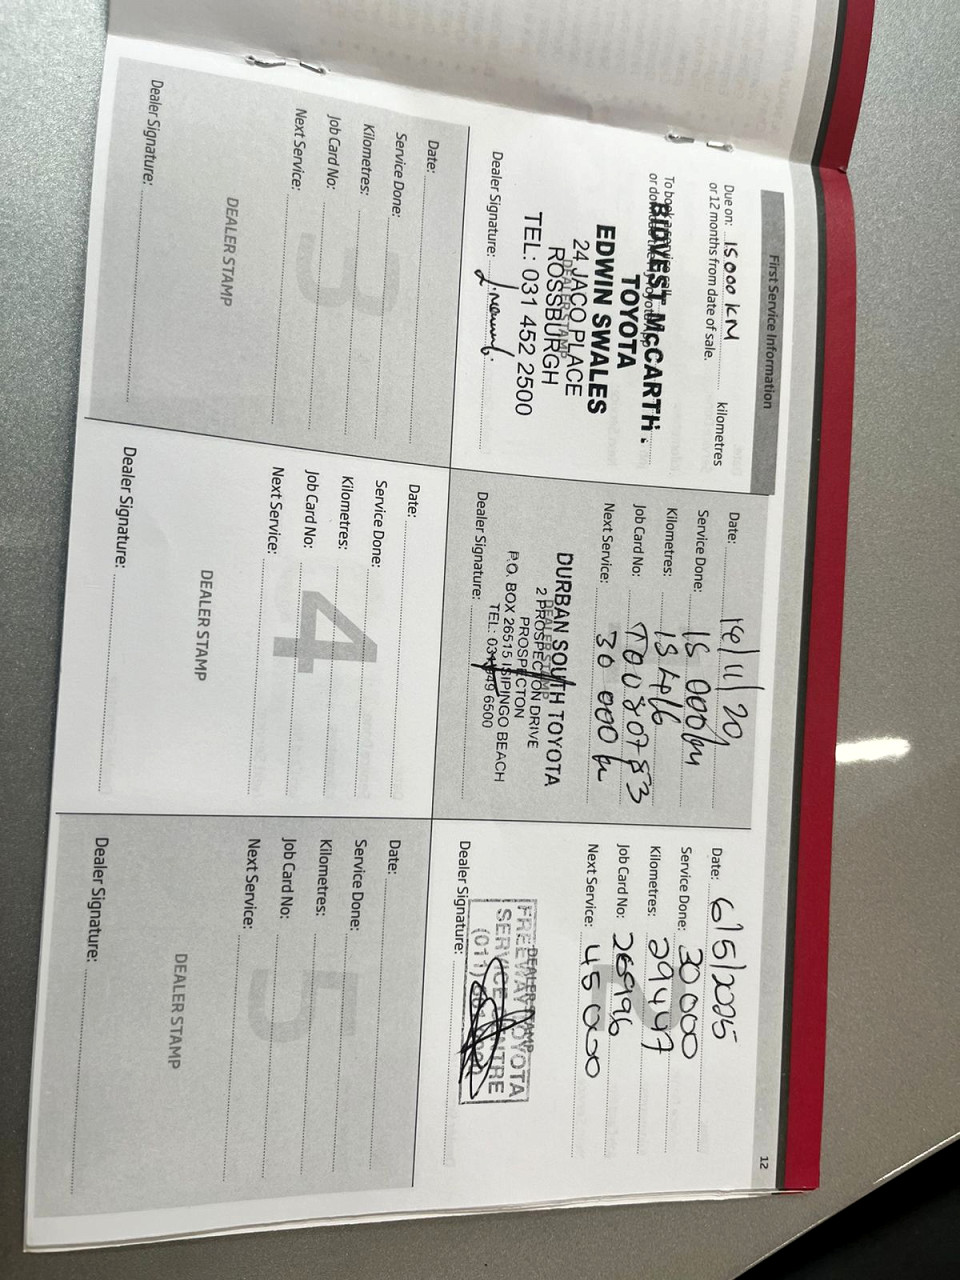 12
First Service Information
Due on: 15 000 KM kilometres
or 12 months from date of sale.
BIDVEST McCARTHY
TOYOTA
EDWIN SWALES
24 JACO PLACE
DEALER STAMP
ROSSBURGH
TEL: 031 452 2500
Dealer Signature:
Date: 18/11/20
Service Done: 15 000km
Kilometres: 13416
Job Card No:
Next Service: 30 000 k
DURBAN SOUTH TOYOTA
DEALER STAMP
2 PROSPECTON DRIVE
PROSPECTON
P.O. BOX 26515 ISIPINGO BEACH
TEL: 031 949 6500
Dealer Signature:
Date: 6/5/2025
Service Done: 30 000
Kilometres: 29447
Job Card No: 26996
Next Service: 45 000
DEALER STAMP
FREEWAY TOYOTA
SERVICE CENTRE
(011)
Dealer Signature:
3
Date:
Service Done:
Kilometres:
Job Card No:
Next Service:
DEALER STAMP
Dealer Signature:
4
Date:
Service Done:
Kilometres:
Job Card No:
Next Service:
DEALER STAMP
Dealer Signature:
5
Date:
Service Done:
Kilometres:
Job Card No:
Next Service:
DEALER STAMP
Dealer Signature: